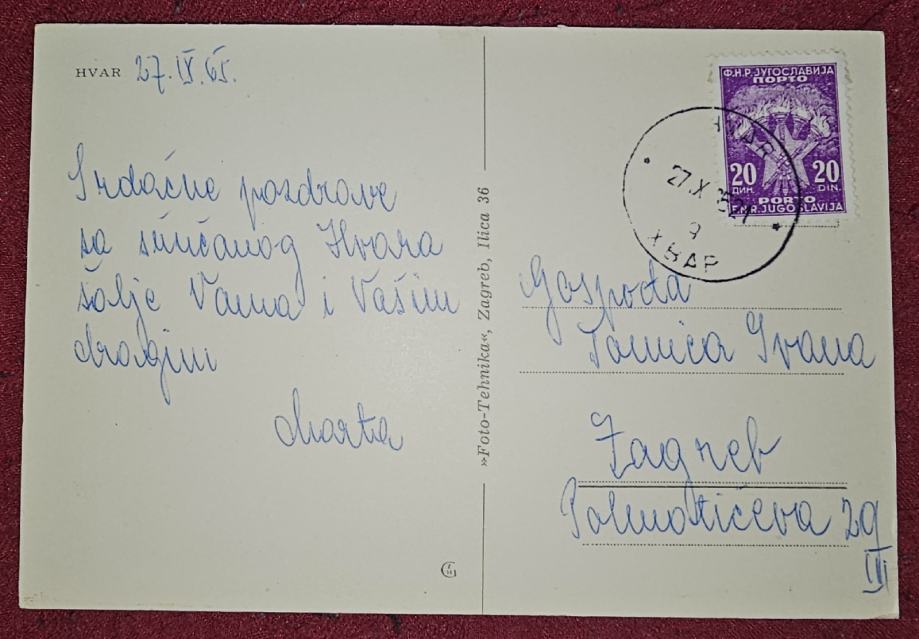 HVAR 27.IX.65.
Srdačne pozdrave
sa sunčanog Hvara
šalje Vama i Vašim
dragim
Marta
»Foto-Tehnika«, Zagreb, Ilica 36
Ф.Н.Р. ЈУГОСЛАВИЈА
ПОРТО
20 20
ДИН. DIN.
PORTO
F.N.R. JUGOSLAVIJA
HVAR
27.X
9
ХВАР
Gospođa
Ivana
Zagreb
Palmotićeva 29
III